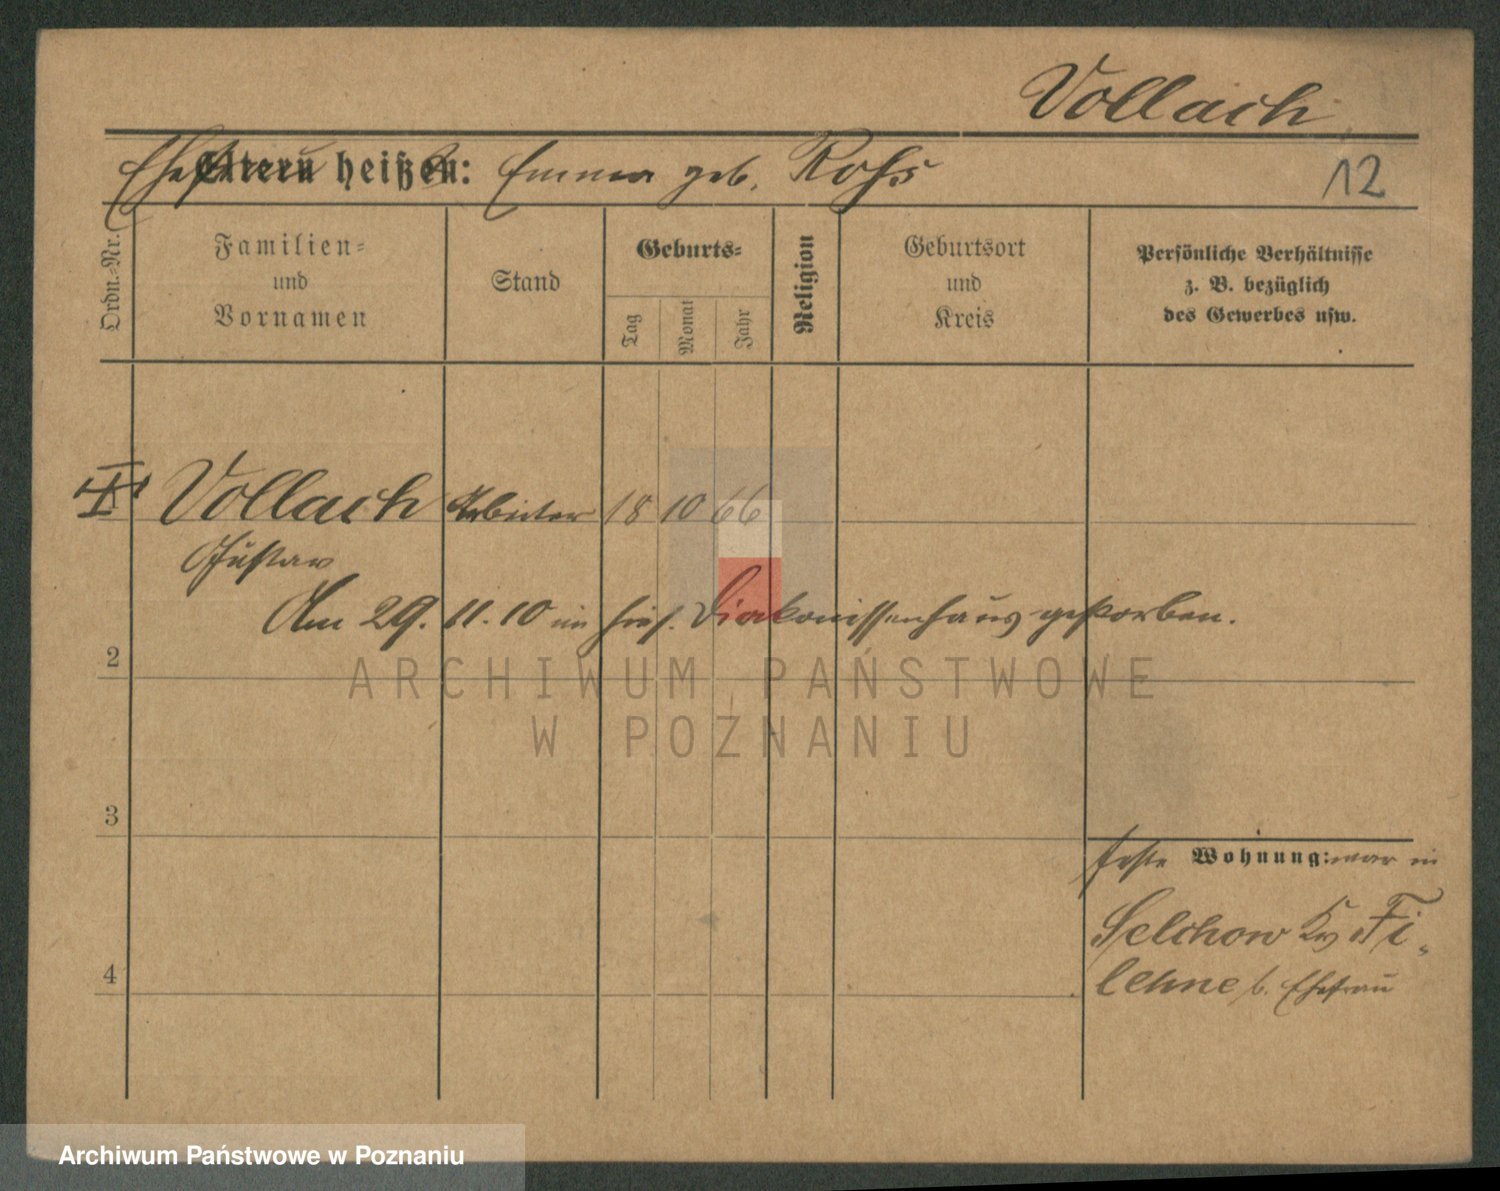 Vollach
Ehefrau Eltern heißen: Emma geb. Rohs
12
Ordn.-Nr.
Familien-
und
Vornamen
Stand
Geburts-
Tag
Monat
Jahr
Religion
Geburtsort
und
Kreis
Persönliche Verhältnisse
z. B. bezüglich
des Gewerbes usw.
Vollach Arbeiter 18 10 66
Gustav
Am 29. 11. 10 im hies. Diakonissenhaus gestorben.
2
ARCHIWUM PAŃSTWOWE
W POZNANIU
3
feste Wohnung: war in
Selchow Kr Fi-
lehne b. Ehefrau
4
Archiwum Państwowe w Poznaniu